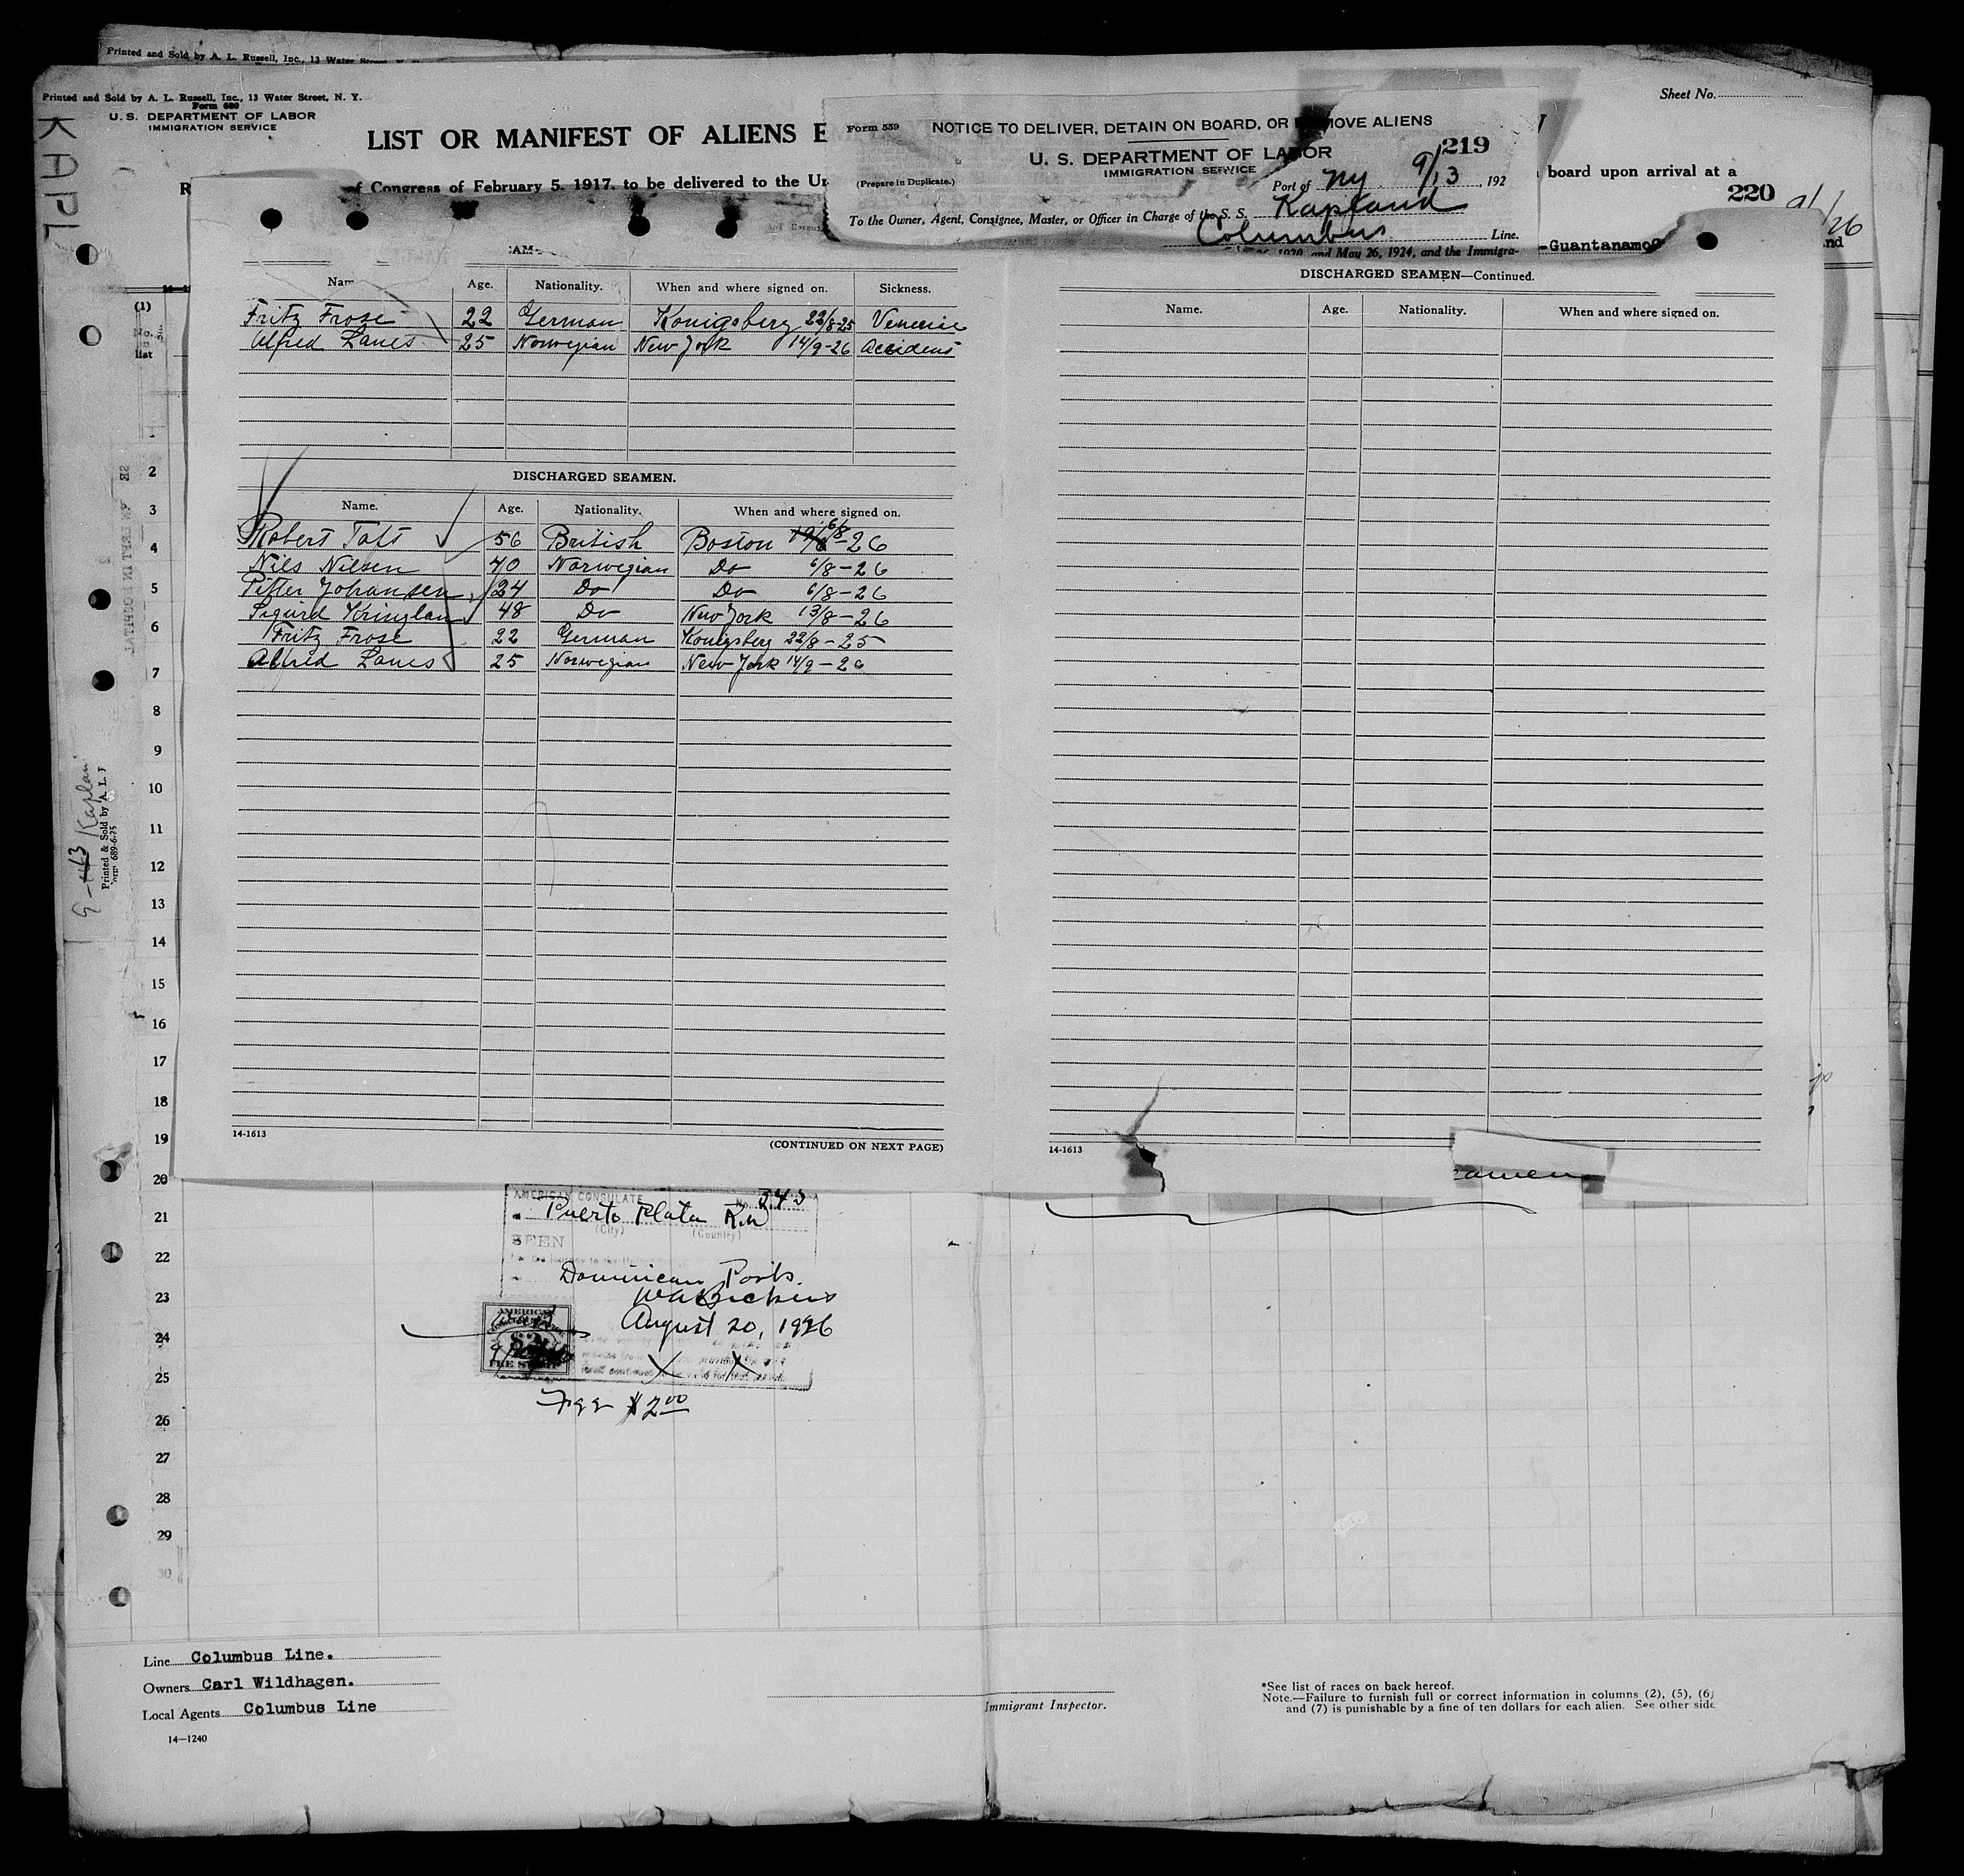 Printed and Sold by A. L. Russell, Inc., 13 Water Street, N. Y.
Printed and Sold by A. L. Russell, Inc., 13 Water Street, N. Y.
Form 680
U. S. DEPARTMENT OF LABOR
IMMIGRATION SERVICE
KAPL
LIST OR MANIFEST OF ALIENS E
Sheet No.
of Congress of February 5, 1917, to be delivered to the Un
board upon arrival at a
220
9/26
-Guantanamo
nd
Form 559
NOTICE TO DELIVER, DETAIN ON BOARD, OR REMOVE ALIENS
219
U. S. DEPARTMENT OF LABOR
IMMIGRATION SERVICE
(Prepare in Duplicate.)
Port of NY. 9/13, 192
To the Owner, Agent, Consignee, Master, or Officer in Charge of the S. S. Kapland
Columbus Line.
1920, and May 26, 1924, and the Immigra-
(1)
No.
list
Name Age. Nationality. When and where signed on. Sickness.
Fritz Frose 22 German Konigsberg 22/8-25 Venerie
Alfred Lanes 25 Norwegian New York 14/9-26 Accident
DISCHARGED SEAMEN.
Name. Age. Nationality. When and where signed on.
Robert Taft 56 British Boston 6/8-26
Nils Nilsen 40 Norwegian Do 6/8-26
Pitter Johansen 24 Do Do 6/8-26
Sigurd Kringlan 48 Do New York 13/8-26
Fritz Frose 22 German Konigsberg 22/8-25
Alfred Lanes 25 Norwegian New York 14/9-26
14-1613
(CONTINUED ON NEXT PAGE)
DISCHARGED SEAMEN—Continued.
Name. Age. Nationality. When and where signed on.
14-1613
2
3
4
5
6
7
8
9
10
11
12
13
14
15
16
17
18
19
20
21
22
23
24
25
26
27
28
29
30
Printed & Sold by A. L. F
AMERICAN CONSULATE
No. 343
Puerto Plata R.D
(City) (Country)
SEEN
Dominican Ports.
August 20, 1926
AMERICAN
$2
FEE STAMP
Fee $2.00
Line Columbus Line.
Owners Carl Wildhagen.
Local Agents Columbus Line
14—1240
Immigrant Inspector.
*See list of races on back hereof.
Note.—Failure to furnish full or correct information in columns (2), (5), (6)
and (7) is punishable by a fine of ten dollars for each alien. See other side